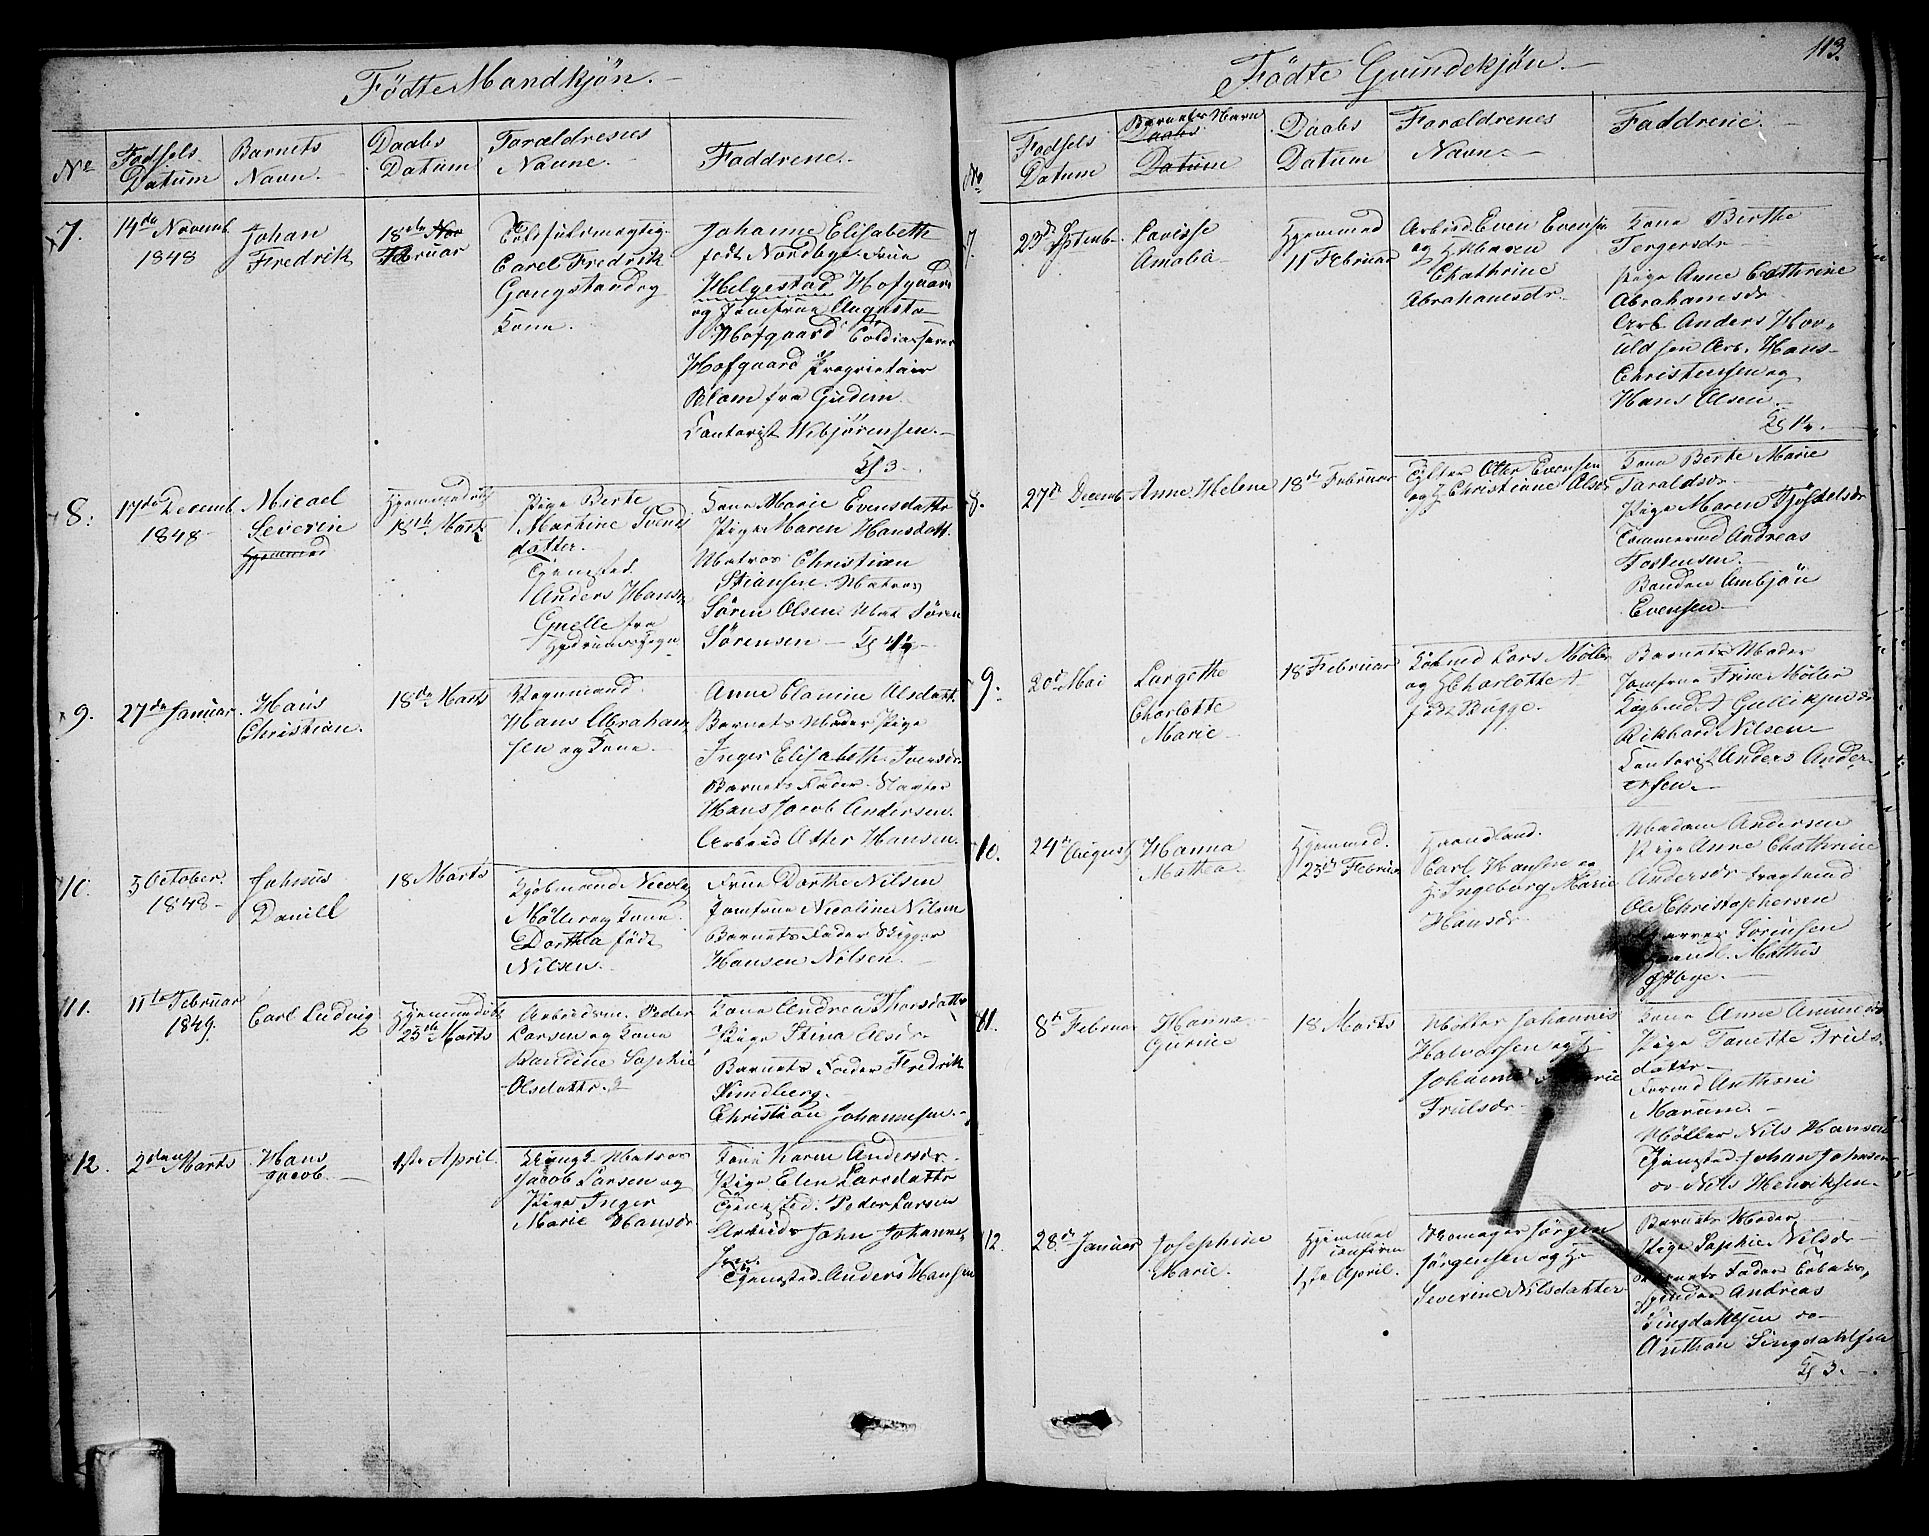 Fødte Mandkjøn.
No
Fødsels
Datum
Barnets
Navn.
Daabs
Datum
Foraldrenes
Navne.
Faddrene.
7.
14de Novemb
1848
Johan
Fredrik
18de Nov
Februar
Carel Fredrik
Gangstand og
Kone.
Johanne Elisabette
født Nordbye. Frue
Helgestad Hofgaard
og Jomfrue Augusta
Hofgaard
Hofgaard Proprietair
Blom fra Gudem
Contorist Wibjørensen.
8.
17de Decemb.
1848
Micael
Severin
Hjemmed
Hjemmedøbt
18de Marts
Pige Berte
Martine Svends
datter.
Tjenstkd.
Anders Hans.
Gnelle fra
Kone Marie Evensdattr
Pige Maren Hansdatt.
Matros Christian
Stiansen. Matros
Sören Olsen. Mat Sören
Sørensen
9.
27de Januar.
Hans
Christian.
18de Marts
Vognmand
Hans Abraham
sen og Kone
Anne Olsdatt.
Barnets Moder Pige
Inger Elisabeth Iversdr
Barnets Fader. Slagter
Hans Jacob Andersen.
Arbeid Otter Hansen.
10.
5 October.
1848
Johnus
Daniel
18 Marts
Kjøbmand Nicolay
Møller og Kone
Dorthea født
Nilsen.
Frue Dorthe Nilsen
Jomfrue Nicoline Nilsen
Barnets Fader Skipper
Hansen Nilsen
11.
11te Februar
1849.
Carl Ludvig
Hjemmedøbt
23de Marts
Arbeidsm. Peder
Larsen og Kone
Randine Sophie
Olsdattr.
Kone Andrea Thorsdattr
Pige Stina Olsdr.
Barnets Fader Fredrik
Lindberg.
Christian Johannesen.
12.
2den Marts
Hans
Jacob.
1ste April.
Matros
Jacob Larsen og
Pige Inger
Marie Hansdr.
Kone Karen Andersdr.
Pige Elen Larsdattr
Tjenstkd. Peder Larsen
Arbeids John Johannes
sen
Tjenstkd. Anders Hansen
113.
Fødte Qvindekjøn.
No
Fødsels
Datum
Barnets Navn
Daabs
Datum
Daabs
Datum
Forældrenes
Navn.
Faddrene.
7.
23de Septemb.
Lovisse
Amalia
Hjemmed
11 Februar
Arbeid Even Evensen
og H Maren
Chathrine
Abrahamsdr.
Kone Berthe
Torgersdr
Pige Anne Cathrine
Abrahamsdr.
Arb. Anders Hav-
aldsen Arb. Hans
Christensen og
Hans Olsen.
8.
27de Decemb
Anne Helene
18de Februar
Otter Evensen
og H Christiane Olsdr
Kone Berte Marie
Taraldsdr.
Pige Maren Kjøstelsdr
Tømmermd Andreas
Tostensen.
Bonden Ambjön
Evensen.
9.
20de Mai
Largethe
Charlotte
Marie
18 Februar
Kjøbmd Lars Møller
og H Charlotte A
født Bugge.
Barnets Moder
Jomfrue Trine Møller
Rikhard Nilsen
Contorist Anders Ander-
ersen.
10.
24de August
Hanna
Mathea
Hjemmed.
23de Februar
Carl Hansen og
H. Ingeborg Marie
Hansdr.
Madam Andersen
Pige Anne Chathrine
Andersdr Fragtmd
Ole Christophersen
Garver Sörensen
Mathis
Østbye.
11.
8de Februar
Hanna
Gurine
18 Marts
Møller Johannes
Halvorsen og H
Johanne Marie
Trulsdr
Kone Anne Amundsdr
Pige Tonette Truls-
datter
Formd Anthoni
Marum.
Møller Nils Hansen
Tjenstkd Johan Johnsen
do Nils Henriksen.
12.
28de Januar
Josephine
Marie.
Hjemmed
1ste April.
Skomager Jörgen
Jörgensen og H
Severine Nilsdatter
Barnets Moder
Pige Sophie Nilsdr
Barnets Fader Tobaks-
spinder Andreas
Lingdahlsen do
Anthon Lingdahlsen